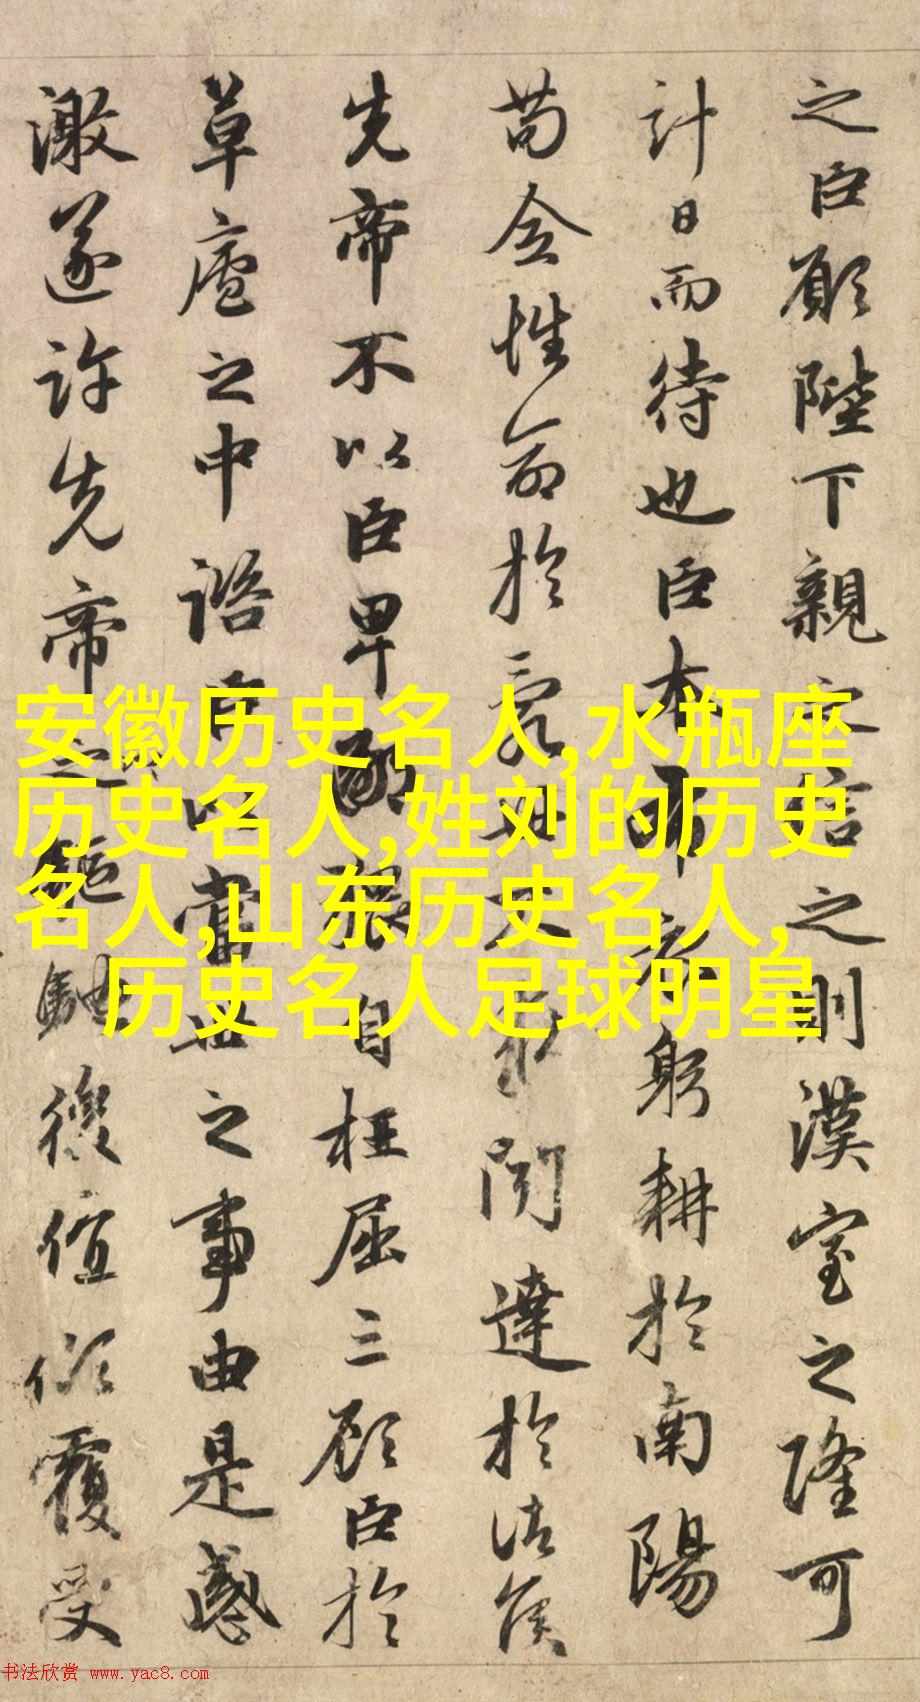 之臣願陛下親之信之則漢室之隆可
計日而待也臣本布衣躬耕於南陽
苟全性命於亂世不求聞達於諸侯
先帝不以臣卑鄙猥自枉屈三顧臣於
草廬之中諮臣以當世之事由是感
激遂許先帝以驅馳後值傾覆受
安徽历史名人,水瓶座
历史名人,姓刘的历史
名人,山东历史名人,
历史名人足球明星
书法欣赏 www.yac8.com